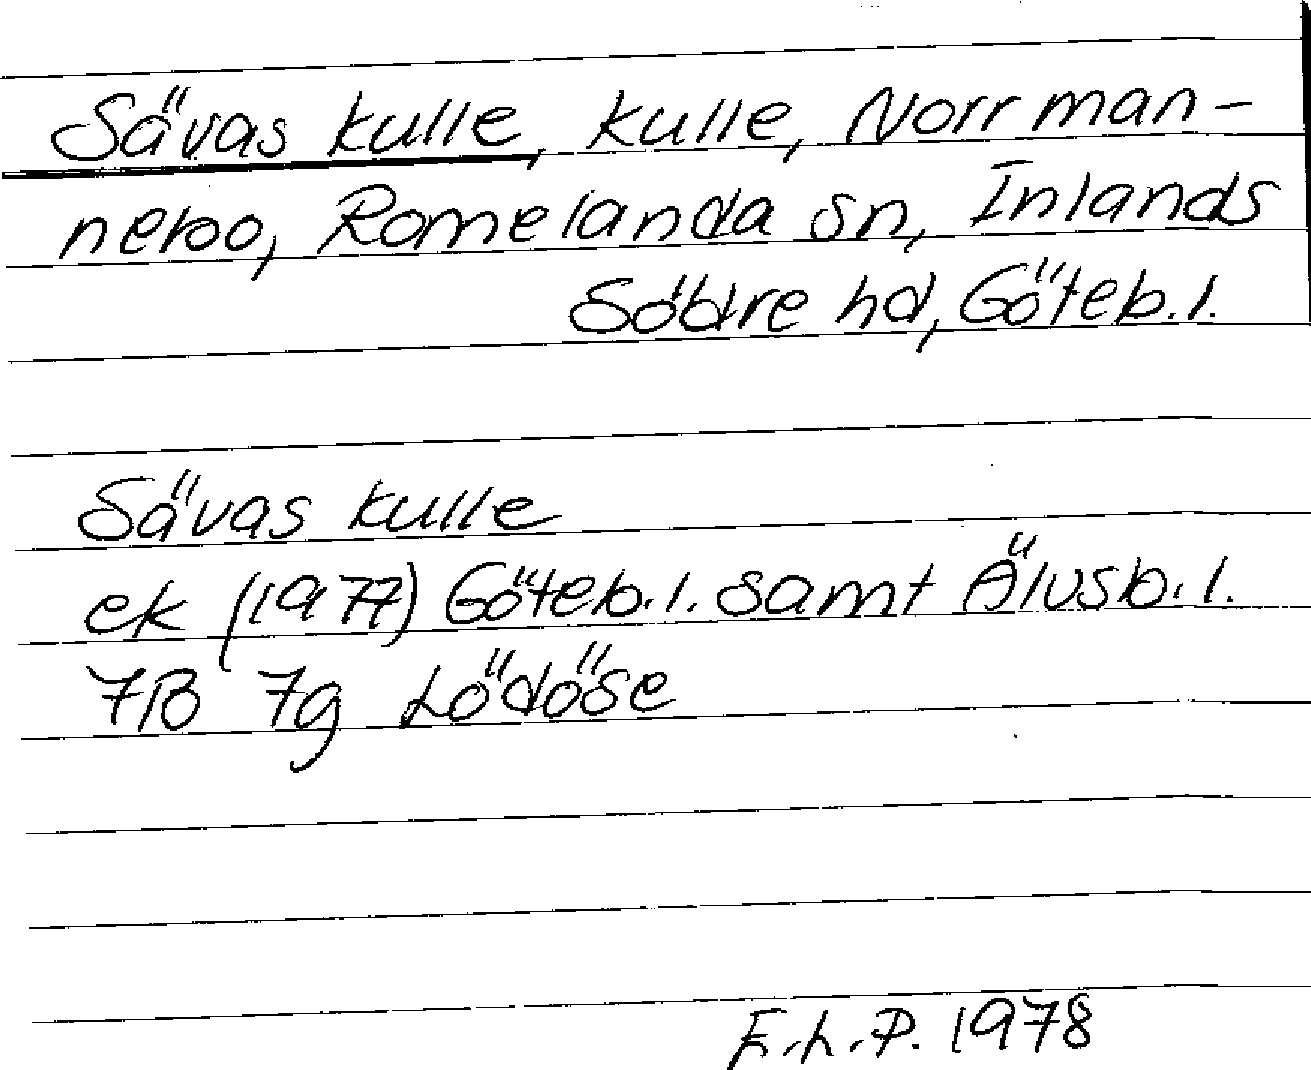 Sävas kulle, kulle, Norrman-
nebo, Romelanda sn, Inlands
Södre hd, Göteb.l.
Sävas kulle
ek (1977) Göteb.l. samt Älvsb.l.
7B 7g Lödöse
E.L.P. 1978